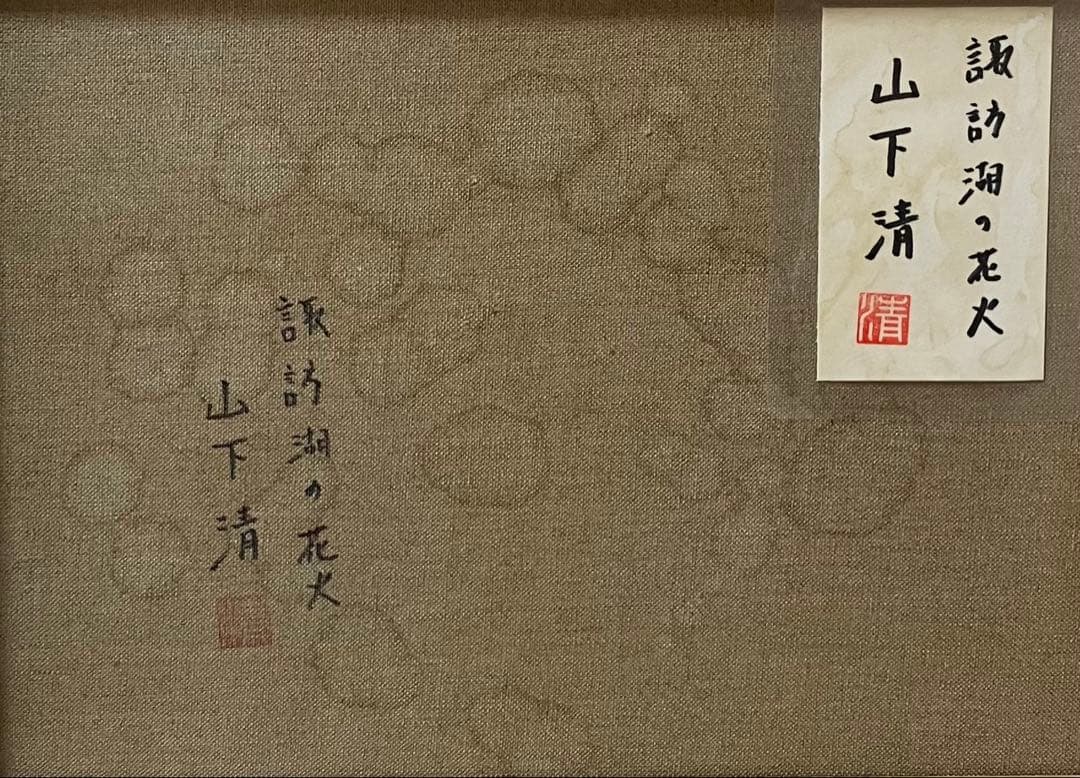 諏訪湖の花火
山下清
清
諏訪湖の花火
山下清